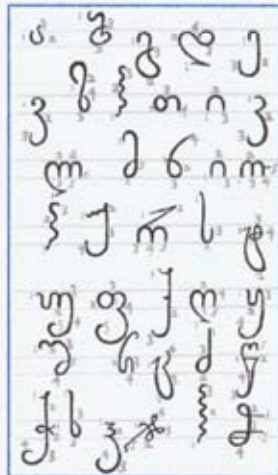 ა ბ გ დ ე
ვ ზ თ ი კ
ლ მ ნ ი ო
პ ჟ რ ს ტ
უ ფ ქ ღ ყ
შ ჩ ც ძ წ
ჭ ხ ჯ ჰ